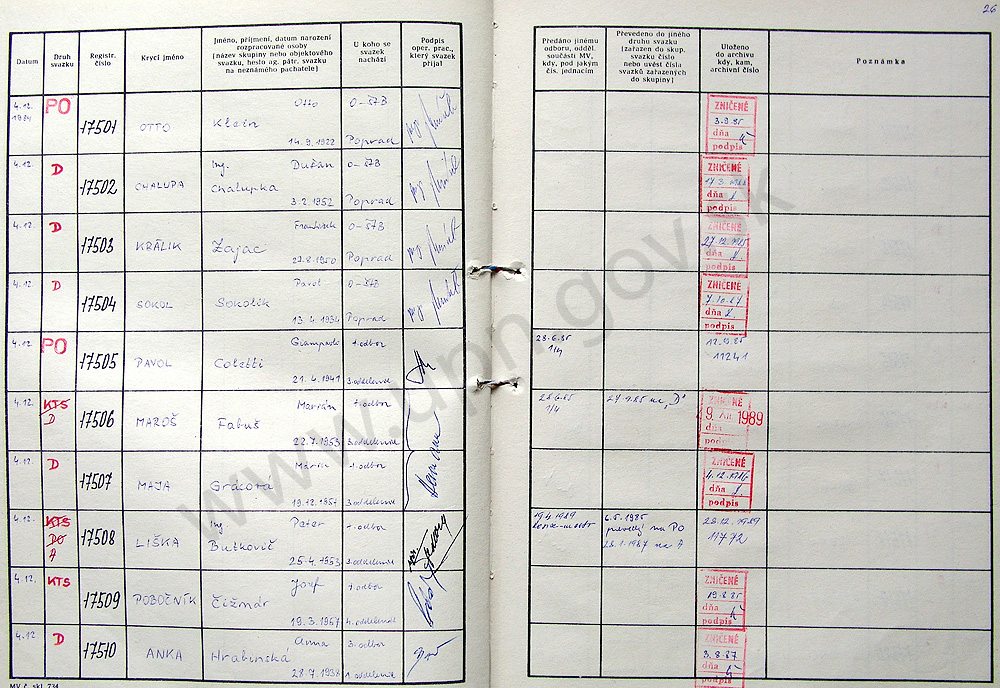 26
Datum
Druh svazku
Registr. číslo
Krycí jméno
Jméno, příjmení, datum narození rozpracované osoby (název skupiny nebo objektového svazku, heslo ag. pátr. svazku na neznámého pachatele)
U koho se svazek nachází
Podpis oper. prac., který svazek přijal
Předáno jinému odboru, odděl. součásti MV, kdy, pod jakým čís. jednacím
Převedeno do jiného druhu svazku (zařazen do skup. svazku číslo nebo uvést čísla svazků zařazených do skupiny)
Uloženo do archivu kdy, kam, archivní číslo
Poznámka
4.12. 1984 PO 17501 OTTO Otto Klein 14.9.1922 O-ŠTB Poprad
ZNIČENÉ 3.9.85 dňa podpis
4.12. D 17502 CHALUPA Ing. Dušan Chalupka 3.2.1952 O-ŠTB Poprad
ZNIČENÉ dňa podpis
4.12. D 17503 KRÁLIK František Zajac 22.8.1950 O-ŠTB Poprad
ZNIČENÉ 27.12.1985 dňa podpis
4.12. D 17504 SOKOL Pavol Sokolík 13.4.1934 O-ŠTB Poprad
ZNIČENÉ 7.10.87 dňa podpis
4.12. PO 17505 PAVOL Giampaolo Coletti 21.4.1941 1.odbor 3.oddelenie
28.6.85 1/4
11241
4.12. KTS D 17506 MAROŠ Marián Fabuš 22.7.1953 1.odbor 3.oddelenie
28.6.85 1/4
27.9.85 na „D"
ZNIČENÉ 9. XII. 1989 dňa podpis
4.12. D 17507 MAJA Mária Grácová 19.12.1957 1.odbor 3.oddelenie
ZNIČENÉ 4.12.1986 dňa podpis
4.12. KTS PO A 17508 LIŠKA Ing. Peter Butkovič 25.4.1953 1.odbor 3.oddelenie
19.4.1989
6.5.1985 prevedený na PO
28.1.1987 na A
28.12.1989
11772
4.12. KTS 17509 POBOČNÍK Jozef Čižmár 19.3.1957 1.odbor 4.oddelenie
ZNIČENÉ 19.8.85 dňa podpis
4.12 D 17510 ANKA Anna Hrabinská 28.7.1938 3.odbor 1.oddelenie
ZNIČENÉ 3.8.87 dňa podpis
MV č. skl. 734
www.upn.gov.sk